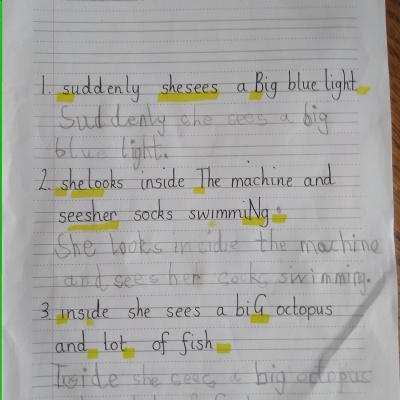 1. suddenly shesees a Big blue light.
Suddenly she sees a big
blue light.
2. shelooks inside The machine and
seesher socks swimmiNg.
She looks incide the machine
and sees her socks swimming.
3. inside she sees a biG octopus
and lot of fish
Inside she sees a big octopus